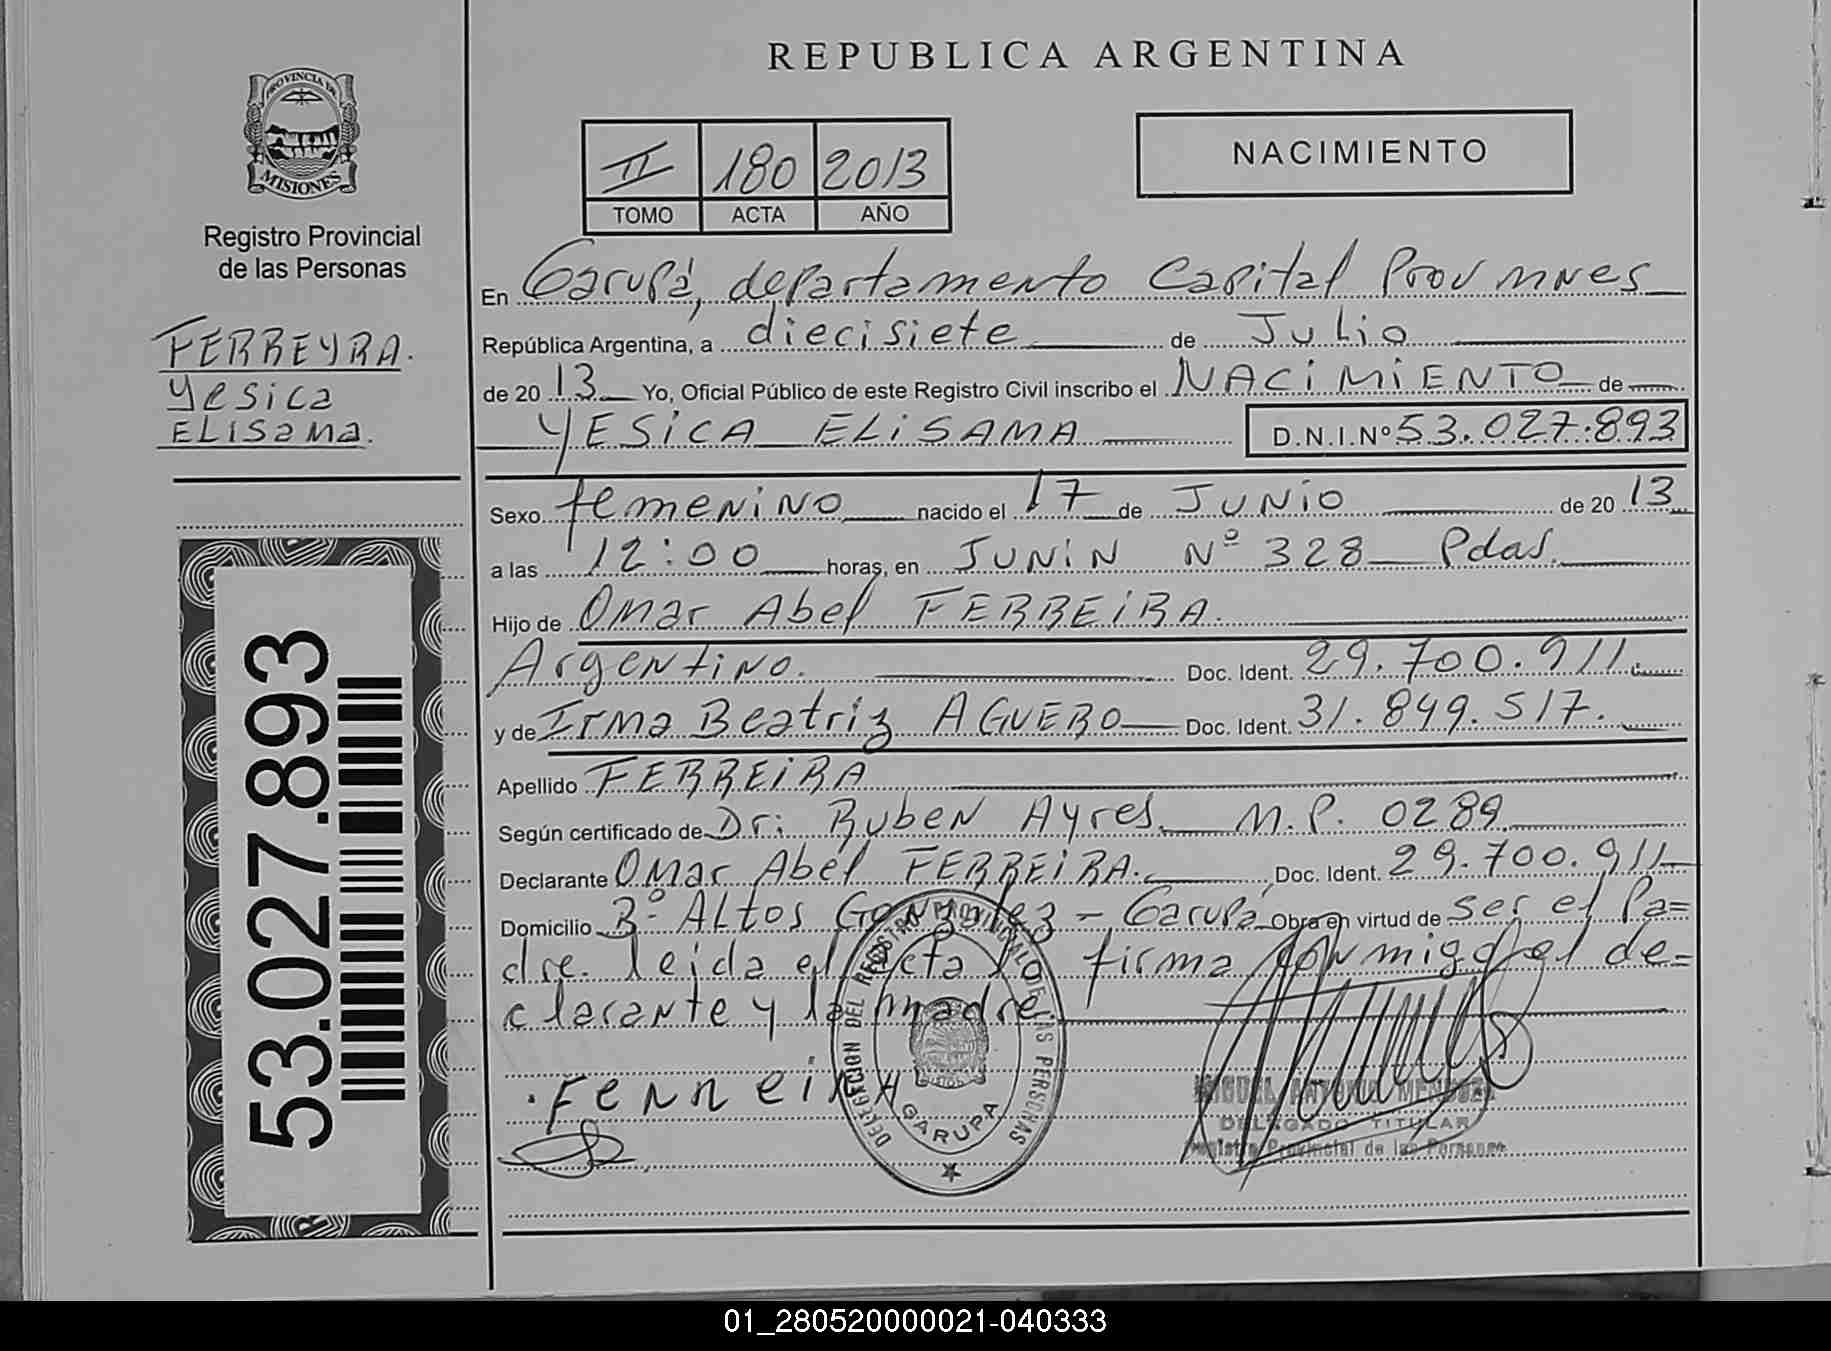 REPUBLICA ARGENTINA
PROVINCIA DE
MISIONES
Registro Provincial
de las Personas
FERREYRA.
Yesica
ELISAMA.
53.027.893
II 180 2013
TOMO ACTA AÑO
NACIMIENTO
En Garupá, departamento Capital Prov mnes
República Argentina, a diecisiete de Julio
de 20 13 Yo, Oficial Público de este Registro Civil inscribo el NACIMIENTO de
YESICA ELISAMA D.N.I.Nº 53.027.893
Sexo femenino nacido el 17 de JUNIO de 20 13
a las 12:00 horas, en JUNIN Nº 328 Pdas.
Hijo de Omar Abel FERREIRA.
Argentino. Doc. Ident. 29.700.911.
y de Irma Beatriz AGUERO Doc. Ident. 31.849.517.
Apellido FERREIRA
Según certificado de Dr: Ruben Ayres. M.P. 0289
Declarante Omar Abel FERREIRA. Doc. Ident. 29.700.911
Domicilio Bº ALTOS Gonzalez - Garupá Obra en virtud de ser el Pa=
dre. leida el acta la firma conmigo el de=
clarante y la madre
Ferreira
DELEGACION DEL REGISTRO PROVINCIAL DE LAS PERSONAS
GARUPA
MIGUEL ANTONIO MENDOZA
DELEGADO TITULAR
Registro Provincial de las Personas
01_280520000021-040333